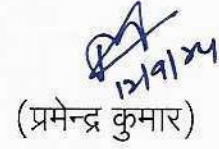 12/9/24
(प्रमेन्द्र कुमार)